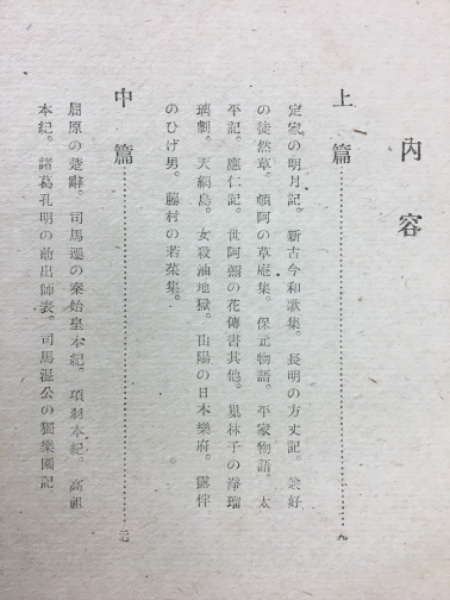 內容
上篇……九
定家の明月記。新古今和歌集。長明の方丈記。兼好
の徒然草。頓阿の草庵集。保元物語。平家物語。太
平記。應仁記。世阿彌の花傳書其他。巢林子の淨瑠
璃劇。天網島。女殺油地獄。山陽の日本樂府。露伴
のひげ男。藤村の若菜集。
中篇……
屈原の楚辭。司馬遷の秦始皇本紀。項羽本紀。高祖
本紀。諸葛孔明の前出師表。司馬溫公の獨樂園記